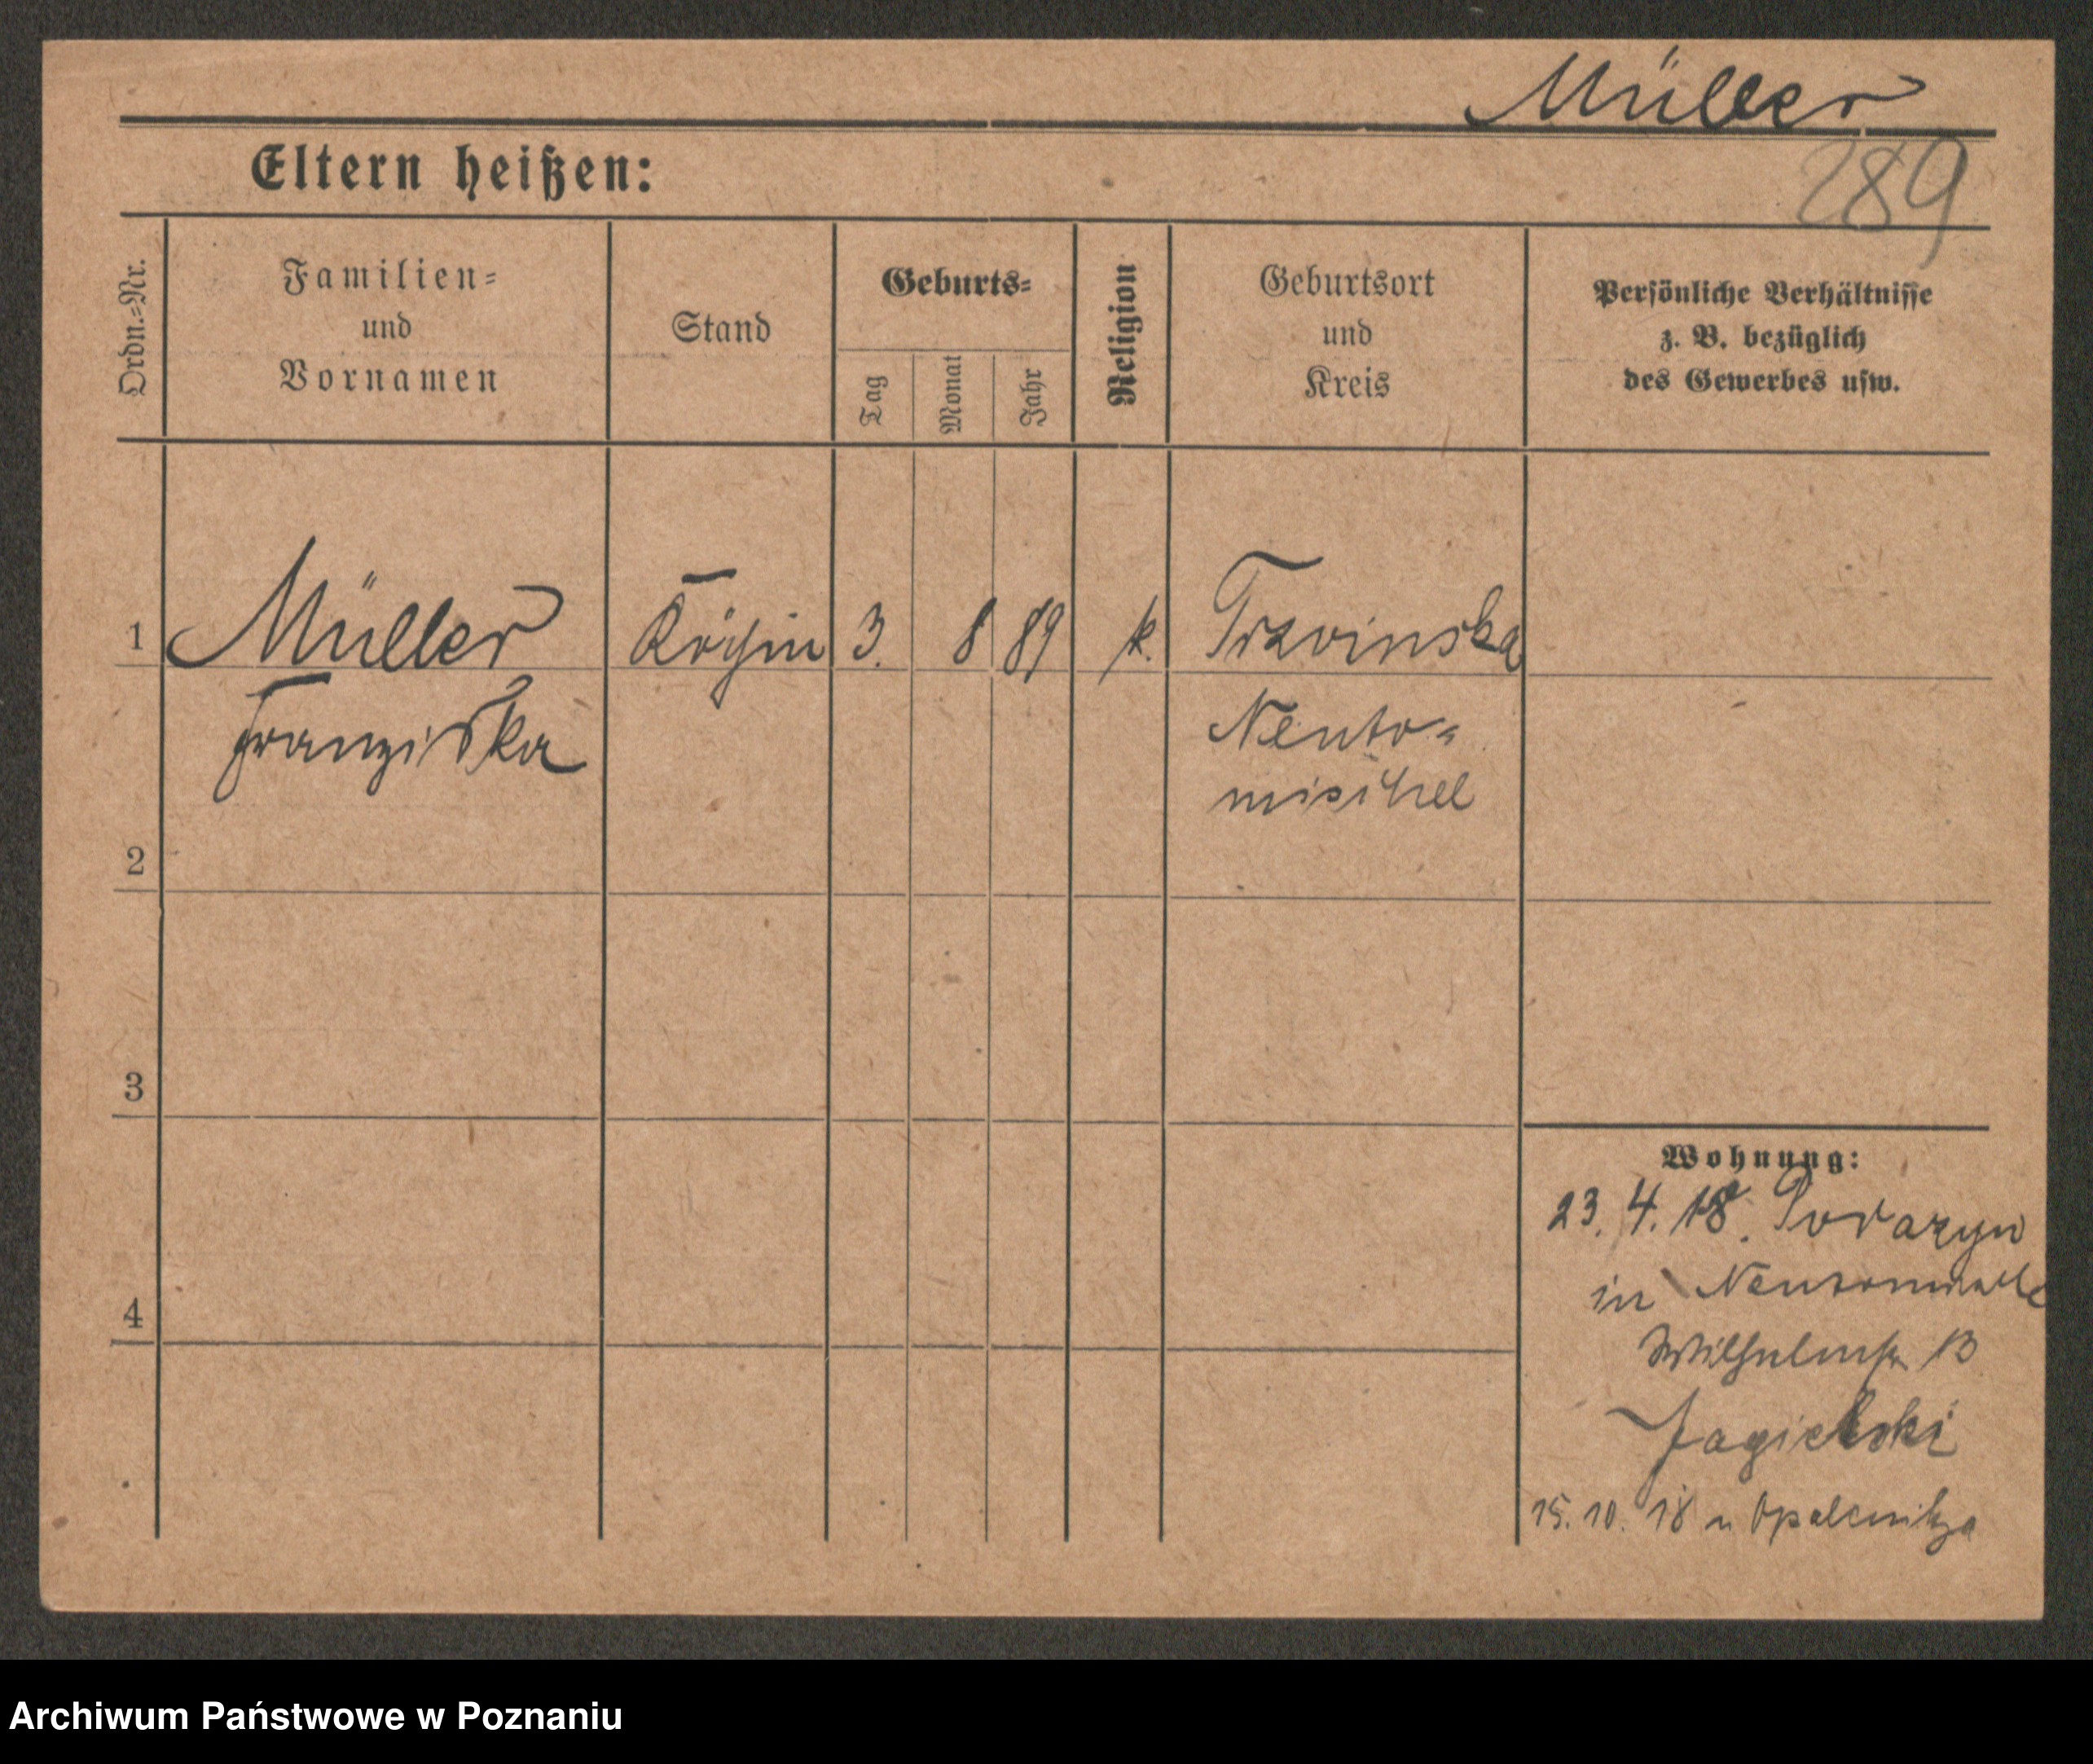 Müller
289
Eltern heißen:
Ordn.-Nr.
Familien-
und
Vornamen
Stand
Geburts-
Tag
Monat
Jahr
Religion
Geburtsort
und
Kreis
Persönliche Verhältnisse
z. B. bezüglich
des Gewerbes usw.
1
Müller
Köchin
3.
8
89
k.
Franziska
Neuto-
mischel
2
3
4
Wohnung:
23. 4. 18. Porazyn
in
Wilhelmstr 13
Jagielski
15. 10. 18 n Opalenitza
Archiwum Państwowe w Poznaniu